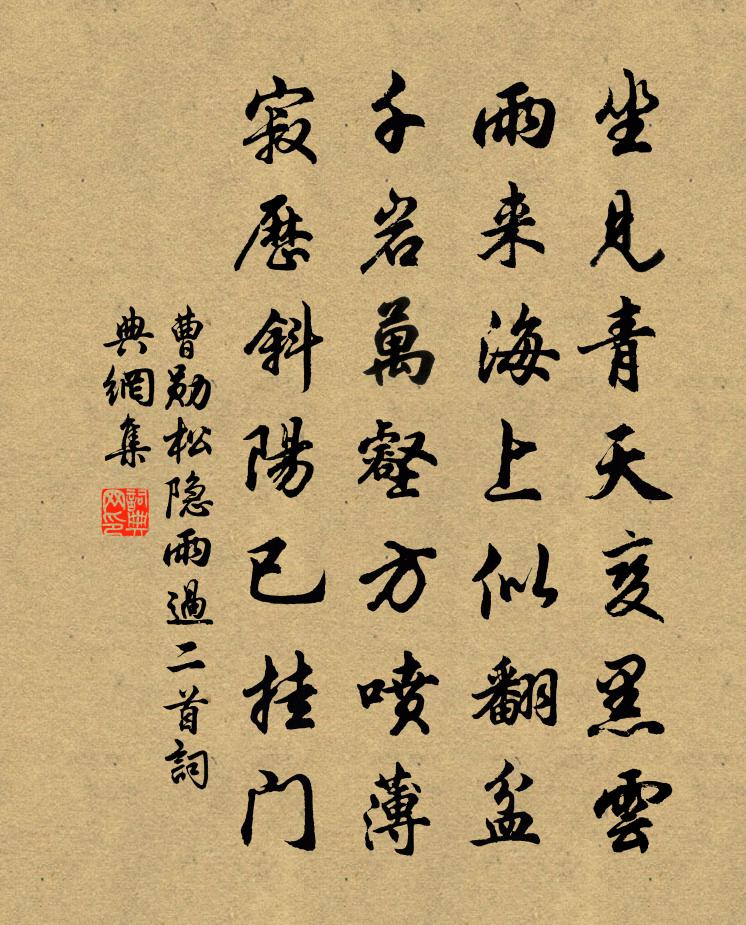 坐見青天变黑雲
雨来海上似翻盆
千岩萬壑方喷薄
寂歷斜陽已挂门
曹勋松隐雨過二首詞
典網集
詞典网印